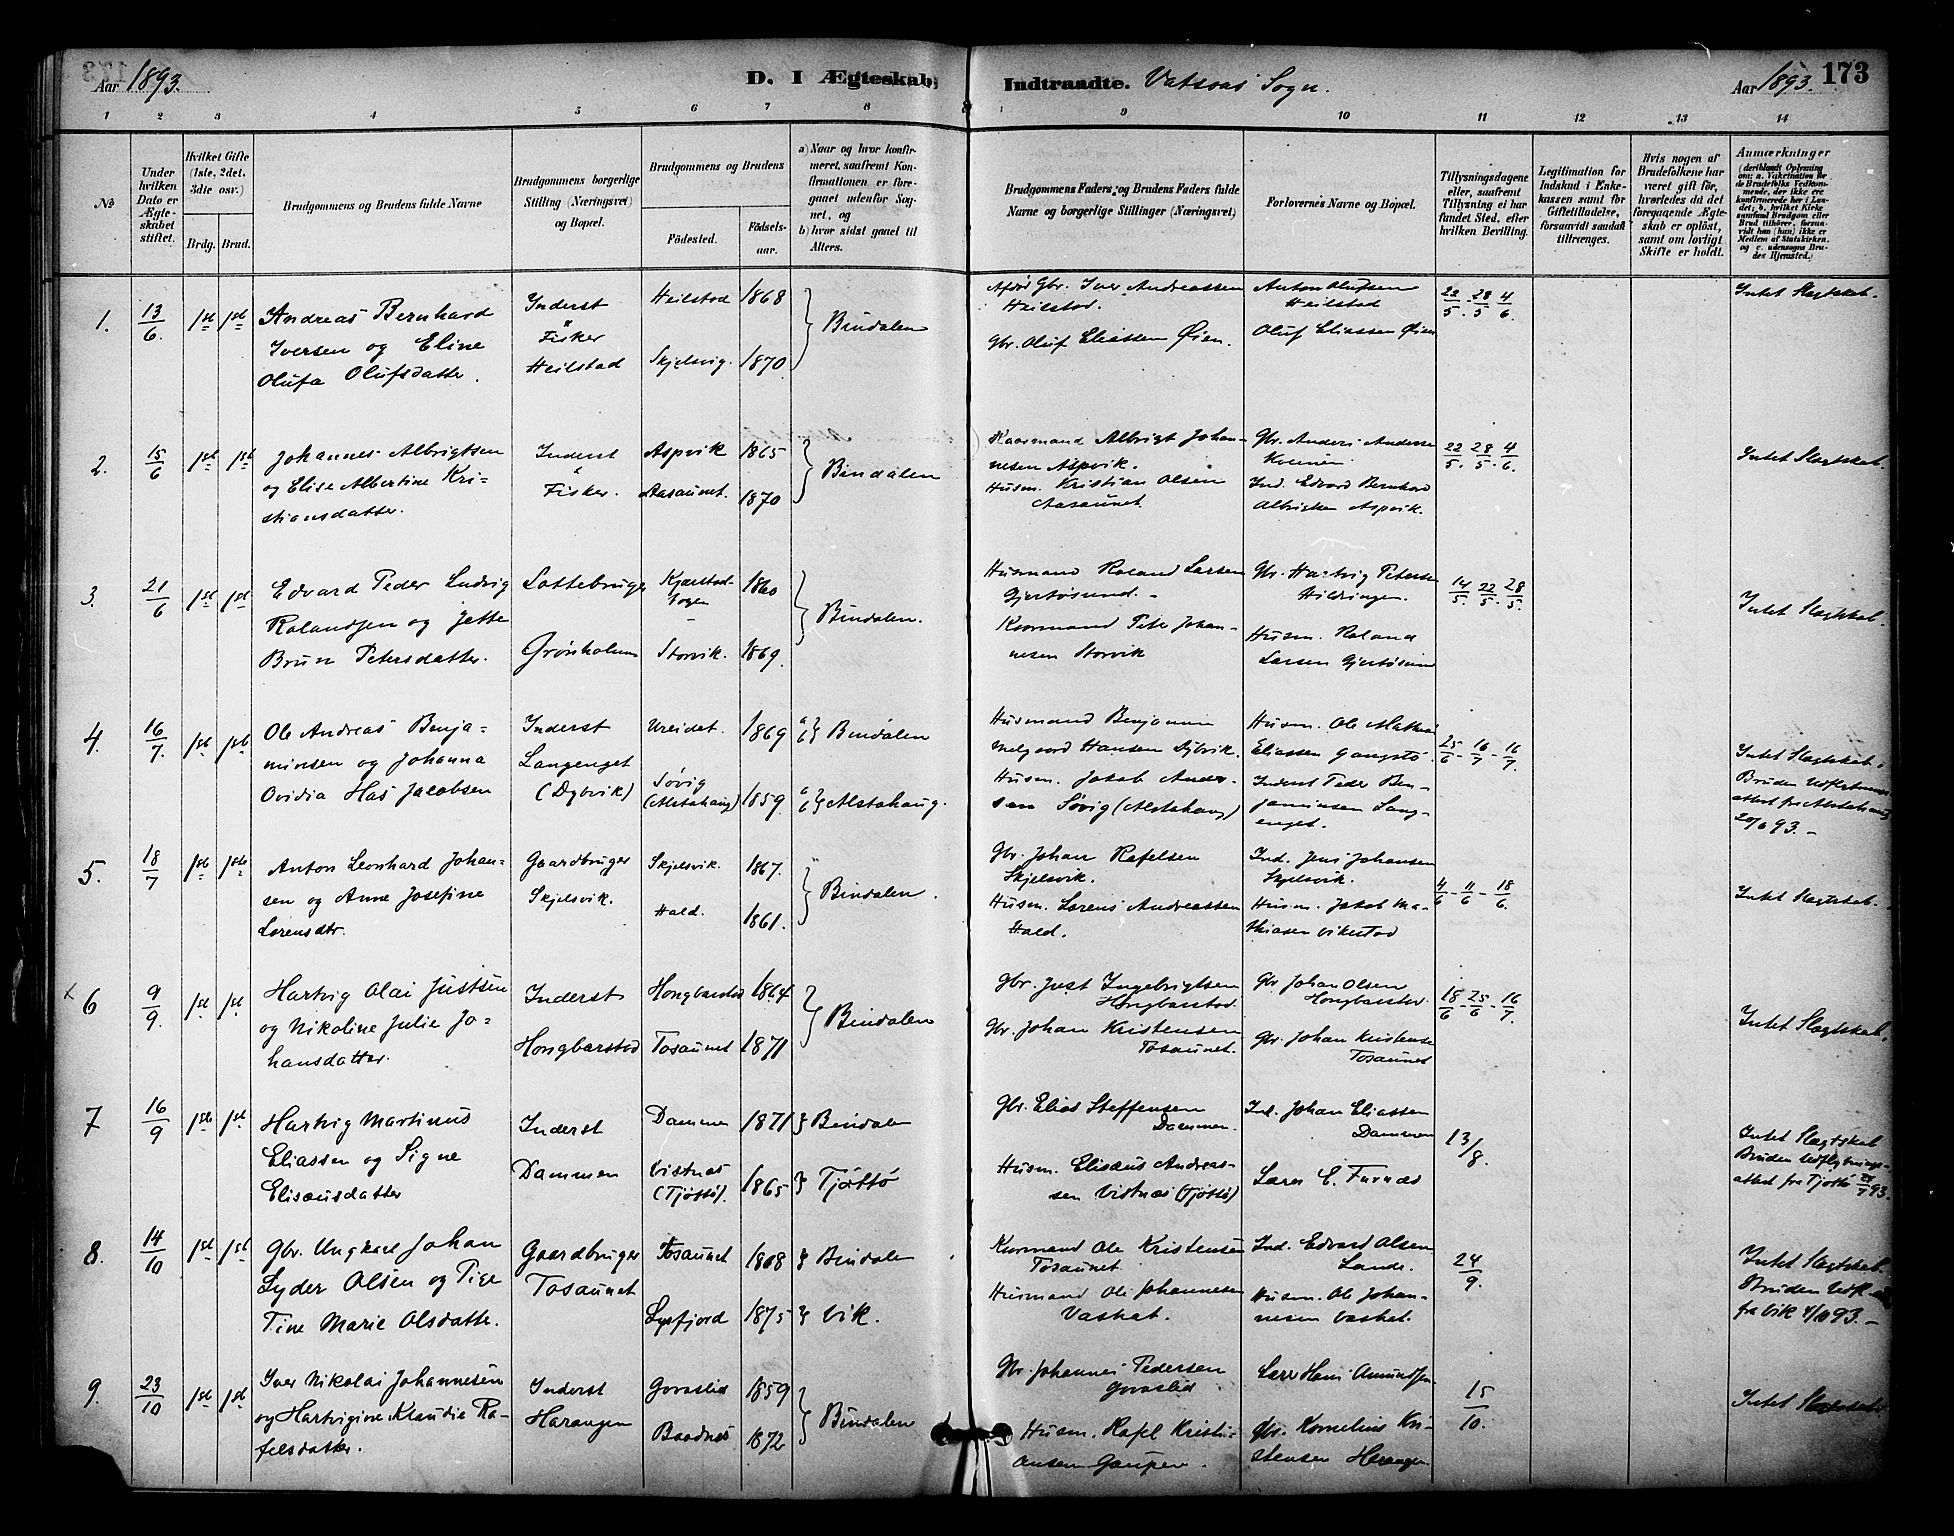 Aar 1893.
D. I Ægteskab Indtraadte. Vatsaas Sogn.
Aar 1893. 173
1 2 3 4 5 6 7 8 9 10 11 12 13 14
No
Under hvilken Dato er Ægteskabet stiftet.
Hvilket Gifte (1ste, 2det, 3die osv.)
Brdg. Brud.
Brudgommens og Brudens fulde Navne
Brudgommens borgerlige Stilling (Næringsvei) og Bopæl.
Brudgommens og Brudens
Fødested.
Fødselsaar.
a) Naar og hvor konfirmeret, saafremt Konfirmationen er foregaaet udenfor Sognet, og
b) hvor sidst gaaet til Alters.
Brudgommens Faders og Brudens Faders fulde Navne og borgerlige Stillinger (Næringsvei)
Forlovernes Navne og Bopæl.
Tillysningsdagene eller, saafremt Tillysning ei har fundet Sted, efter hvilken Bevilling.
Legitimation for Indskud i Enkekassen samt for Giftetilladelse, forsaavidt saadan tiltrænges.
Hvis nogen af Brudefolkene har været gift før, hvorledes da det foregaaende Ægteskab er opløst, samt om lovligt Skifte er holdt.
Anmærkninger
(deriblandt Oplysning om: a. Vakcination for de Brudefolks Vedkommende, der ikke ere konfirmerede her i Landet; b. hvilket Kirkesamfund Brudgom eller Brud tilhører, forsaavidt han (hun) ikke er Medlem af Statskirken, og c. udensogns Brudes Hjemsted.)
1. 13/6. 1st 1st
Andreas Bernhard
Iversen og Eline
Olufa Olufsdatter.
Inderst
Fisker
Heilstad
Heilstad 1868
Skjelsvig. 1870
Bindalen
Gbr. Iver Andreassen
Heilstad.
Gbr. Oluf Eliassen Øien.
Anton Olufsen
Heilstad
Oluf Eliassen Øien
22/5. 28/5 4/6
Intet Slægtskab.
2. 15/6 1st 1st
Johannes Albrigtsen
og Elise Albertine Kri-
stiansdatter.
Inderst
Fisker.
Aspvik 1865
Aasaunet. 1870
Bindalen
Kaarmand Albrigt Johan-
nesen Aspvik.
Husm. Kristian Olsen
Aasaunet
Gbr. Anders Anderse
Ind. Edvard Bernhard
Albrigtsen Aspvik.
22/5. 28/5. 4/6.
Intet Slægtskab.
3. 21/6 1st 1st
Edvard Peder Ludvig
Rolandsen og Jette
Brun Petersdatter.
Grønholmen
1860
Storvik. 1869.
Bindalen.
Husmand Roland Larsen
Gjertøsund.
Kaarmand Peter Johan-
nesen Storvik
Gbr. Hartvig Petersen
Hildringen.
Husm. Roland
Larsen Gjertøsund
14/5. 22/5. 28/5.
Intet Slægtskab.
4. 16/7. 1st 1st
Ole Andreas Benja-
minsen og Johanna
Ovidia Has Jacobsen
Inderst
Langenget
(Dybvik)
Ureidet. 1869
Søvig
(Alstahaug) 1859.
a b Bindalen
a b Alstahaug.
Husmand Benjamin
Melgaard Hansen Dybvik.
Husm. Jakob Ander-
sen Søvig (Alstahaug)
Husm. Ole Mathi
Eliassen Gangstø
Inderst Peder Ben-
jaminsen Lang-
enget.
25/6 - 16/7 - 16/7.
Intet Slægtskab.
Bruden Udflytnings-
attest fra Alstahaug
20/6 93.
5. 18/7 1ste 1ste
Anton Leonhard Johan-
sen og Anne Josefine
Lorensdtr.
Gaardbruger
Skjelsvik.
Skjelsvik. 1867.
Hald. 1861.
Bindalen.
Gbr. Johan Rafelsen
Skjelsvik.
Husm. Lorens Andreassen
Hald.
Ind. Jens Johansen
Skjelsvik.
Husm. Jakob Ma-
thiasen Vikestad
4/6 - 11/6 - 18/6.
Intet Slægtskab.
6 9/9. 1st 1st
Hartvig Olai Justsen
og Nikoline Julie Jo-
hansdatter.
Inderst
Hongbarstad
Hongbarstad 1864
Tosaunet 1871
Bindalen
Gbr. Just Ingebrigtsen
Hongbarstad.
Gbr. Johan Kristensen
Tosaunet.
Gbr Johan Olsen
Hongbarstad.
Gbr. Johan Kristense
Tosaunet
18/6 - 25/6 - 16/7.
Intet Slægtskab.
7 16/9 1ste 1st
Hartvig Martinus
Eliassen og Signe
Elisæusdatter
Inderst
Dammen
Dammen 1871
Vistnæs
(Tjøttø). 1865
Bindalen
Tjøttø
Gbr. Elias Steffensen
Dammen.
Husm. Elisæus Andreas-
sen Vistnæs (Tjøttø)
Ind. Johan Eliassen
Dammen
Lærer E. Furnæs
13/8.
Intet Slægtskab
Bruden Udflytnings-
attest fra Tjøttø 93.
8. 14/10 1st 1st
Gbr. Ungkarl Johan
Lyder Olsen og Pige
Tine Marie Olsdatter.
Gaardbruger
Tosaunet
Tosaunet 1868
Lysfjord 1875
Bindalen
Vik.
Kaarmand Ole Kristensen
Tosaunet
Husmand Ole Johannesen
Vaskat.
Ind. Edvard Olsen
Lande.
Husm. Ole Johan-
nesen Vaskat.
24/9.
Intet Slægtskab.
Bruden Udfl.
fra Vik 4/10 93.
9. 23/10 1st 1st
Iver Nikolai Johannesen
og Hartvigine Klaudie Ra-
felsdatter.
Inderst
Harangen
Govaslid 1859
Baadnes 1872
Bindalen
Gbr. Johannes Pedersen
Govaslid
Husm. Rafel Kristi-
ansen Gaupen.
Lærer Hans Amundsen
Gbr. Kornelius Kri-
stensen Harangen
15/10.
Intet Slægtskab